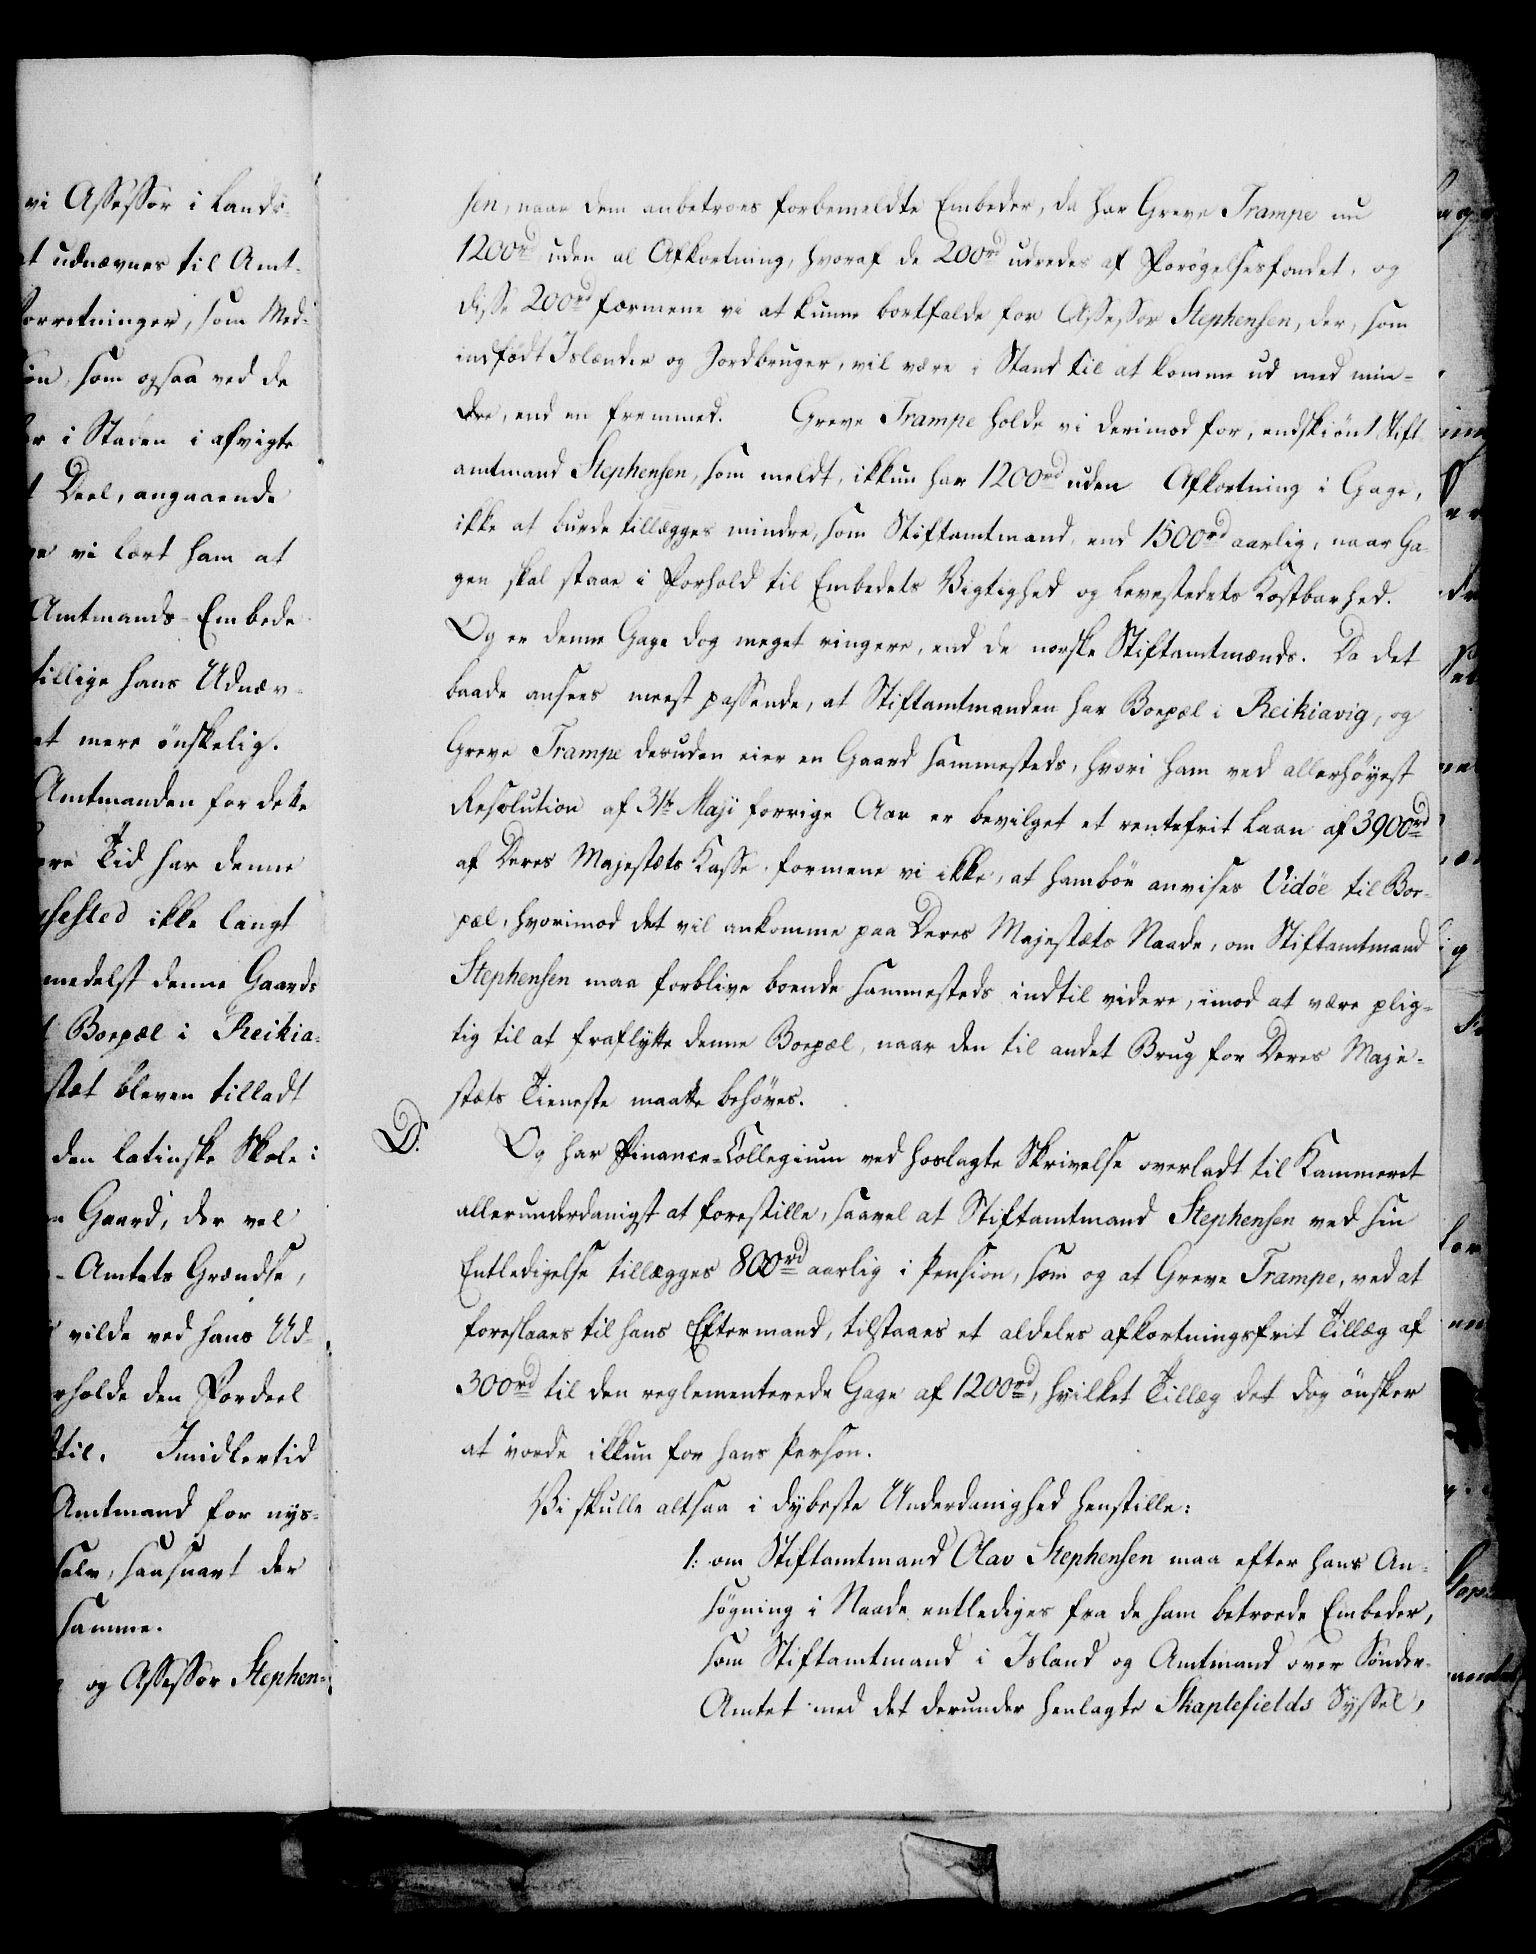 vi Assessor i Lands-
at udnævnes til Amt-
Forretninger, som Med-
som ogsaa ved de
i Staden i afvigte
Deel, angaaende
vi lært ham at
Amtmands-Embede
tillige hans Udnæv-
at mere ønskelig.
Amtmanden for dette
Tid har denne
ikke langt
medelst denne Gaards
Boepæl i Reikia-
stæt bleven tilladt
den latinske Skole i
Gaard, der vel
Amtets Grændse,
vilde ved hans Ud-
holde den Fordeel
til. Imidlertid
Amtmand for nys-
selv, saasnart der
samme.
og Assessor Stephen-
sen, naar dem anbetroes forbemeldte Embeder, da har Greve Trampe nu
1200rd uden al Afkortning, hvoraf de 200rd udredes af Forøgelsesfondet, og
disse 200rd formene vi at kunne bortfalde for Assessor Stephensen, der, som
indfødt Islænder og Jordbruger, vil være i Stand til at komme ud med min-
dre, end en fremmed. Greve Trampe holde vi derimod for, endskiønt Stift
amtmand Stephensen, som meldt, ikkun har 1200rd uden Afkortning i Gage,
ikke at burde tillægges mindre, som Stiftamtmand, end 1500rd aarlig, naar Ga-
gen skal staae i Forhold til Embedets Vigtighed og Levestedets Kostbarhed.
Og er denne Gage dog meget ringere, end de norske Stiftamtmænds. Da det
baade ansees meest passende, at Stiftamtmanden har Boepæl i Reikiavig, og
Greve Trampe desuden eier en Gaard sammesteds, hvori ham ved allerhøyest
Resolution af 31te Maji forrige Aar er bevilget et rentefrit Laan af 3900rd
af Deres Majestæts Kasse, formene vi ikke, at ham bør anvises Vidöe til Boe-
pæl, hvorimod det vil ankomme paa Deres Majestæts Naade, om Stiftamtmand
Stephensen maa forblive boende sammesteds indtil videre, imod at være plig-
tig til at fraflytte denne Boepæl, naar den til andet Brug for Deres Maje-
stæts Tieneste maatte behøves.
D. Og har Finance-Collegium ved hoslagte Skrivelse overladt til Kammeret
allerunderdanigst at forestille, saavel at Stiftamtmand Stephensen ved sin
Entledigelse tillægges 800rd aarlig i Pension, som og at Greve Trampe, ved at
foreslaaes til hans Eftermand, tilstaaes et aldeles afkortningsfrit Tillæg af
300rd til den reglementerede Gage af 1200rd, hvilket Tillæg det dog ønsker
at vorde ikkun for hans Person.
Vi skulle altsaa i dybeste Underdanighed henstille:
1: om Stiftamtmand Olav Stephensen maa efter hans An-
søgning i Naade entlediges fra de ham betroede Embeder,
som Stiftamtmand i Island og Amtmand over Sønder-
Amtet med det derunder henlagte Skaptefields Syssel,